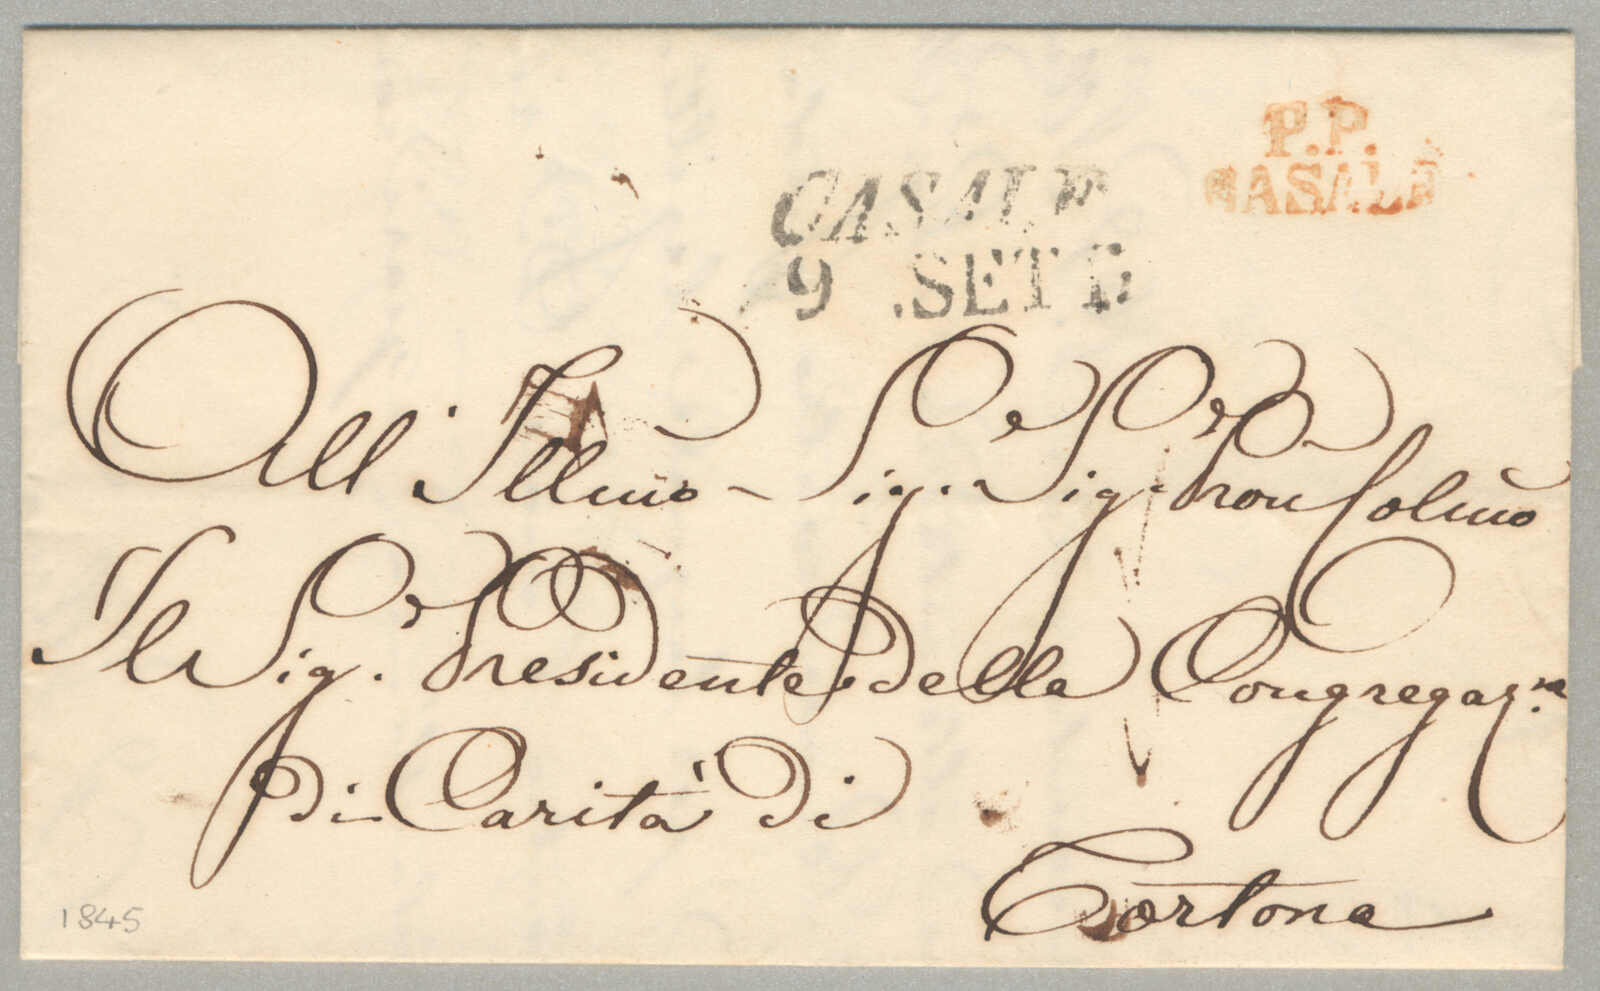 P.P.
CASALE
CASALE
9 .SETT
All' Illmo Sig.r Sig.r Pron Colmo
Il Sig.r Presidente della Congregaz.ne
di Carità di
Tortona
1845